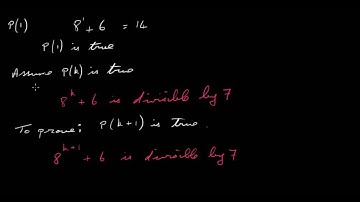 P(1) 8¹ + 6 = 14
P(1) is true
Assume P(k) is true
8ᵏ + 6 is divisible by 7
To prove: P(k+1) is true.
8ᵏ⁺¹ + 6 is divisible by 7